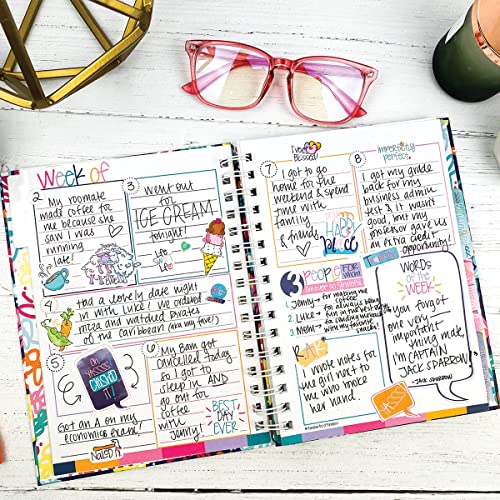 Week of
2
My roomate
made coffee for
me because she
saw I was
running
late
3
Went out
for
ICE CREAM
tonight!
life is
4
Had a lovely date night
in with Luke! We ordered
pizza and watched Pirates
of the Caribbean (aka my fave!)
5
oh
YASSSS
CRUSHED
IT!
Got an A on my
economics exam!
NAILED it
6
My 8am got
cancelled today
so I got to
sleep in AND
got out for
coffee
with
Jenny!
BEST
DAY
EVER
I'm
Blessed!
7
I got to go
home for the
weekend & spend
time with
family
& friends
my
HAPPY
place
imperfectly
perfect
8
I got my grade
back for my
business admin
test & it wasn't
good, but my
professor gave us
an extra credit
opportunity!
3 PEOPLE FOR
WHOM
1. Jenny → for making me
coffee
2. Luke →
3. Mom → with my favorite
snacks!
I wrote notes for
the girl next to
me who broke
her hand.
WORDS
OF THE
WEEK
You forgot
one very
important
thing mate,
I'm CAPTAIN
JACK SPARROW!
- JACK SPARROW
YASSS!